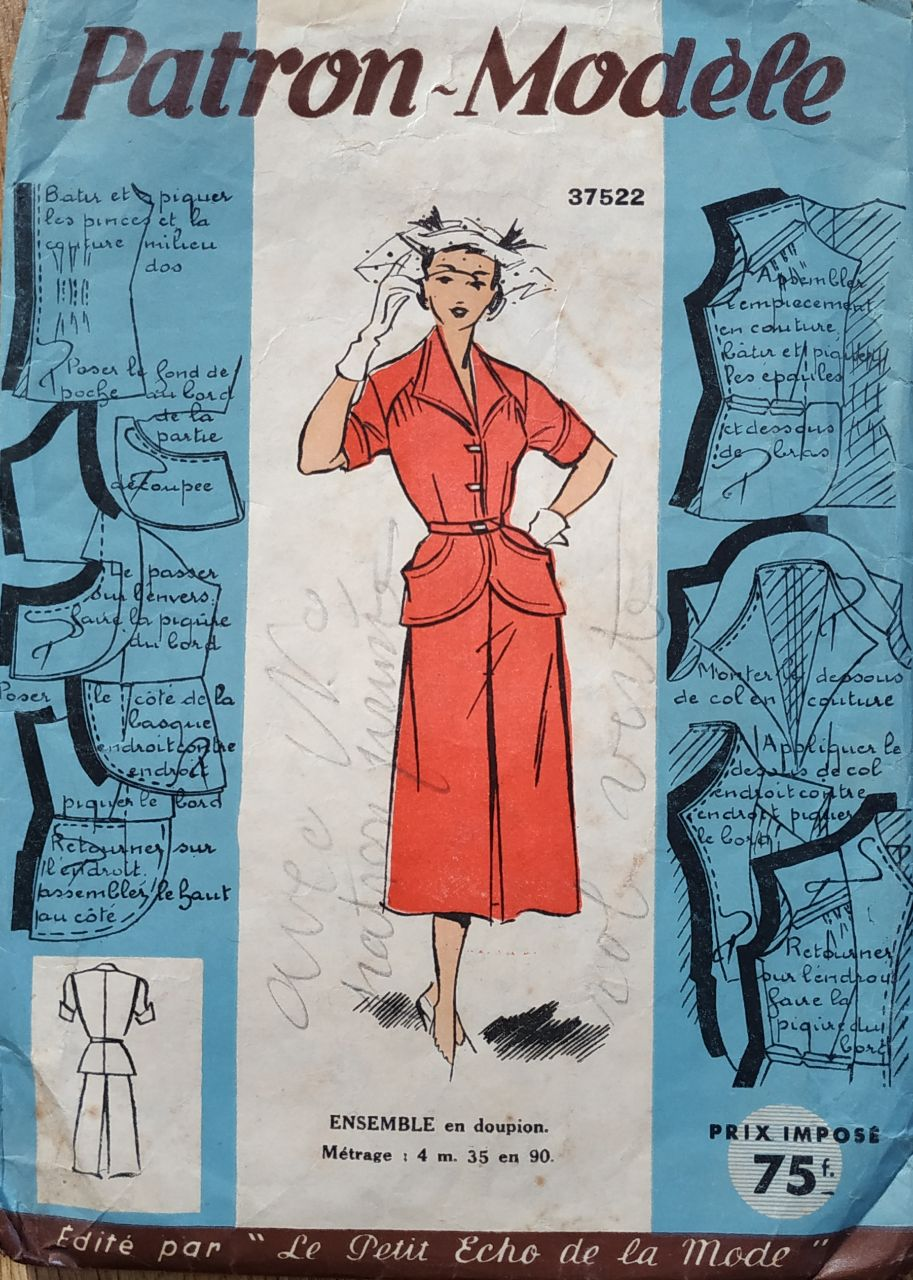 Patron-Modèle
37522
Bâtir et piquer
les pinces et la
couture milieu
dos
Poser le fond de
poche au bord
de la
partie
découpée
De passer
sur l'envers.
faire la piqûre
du bord
Poser le côté de la
basque
endroit contre
endroit
piquer le bord
Retourner sur
l'endroit.
assembler le haut
au côté
Assembler
l'empiècement
en couture,
bâtir et piquer
les épaules
et dessous
de bras
Monter le dessous
de col en couture
Appliquer le
dessus de col
endroit contre
endroit piquer
le bord
Retourner
sur l'endroit
faire la
piqûre du
bord
avec No
patron
col
ENSEMBLE en doupion.
Métrage : 4 m. 35 en 90.
PRIX IMPOSÉ
75f.
Édité par "Le Petit Echo de la Mode"